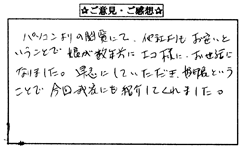 ☆ご意見・ご感想☆
パソコンよりの閲覧にて、他社よりもお安いと
いうことで娘が数年前にエコ様に、お世話に
なりました。早急にしていただき、好印象という
ことで今回我在にも紹介してくれました。